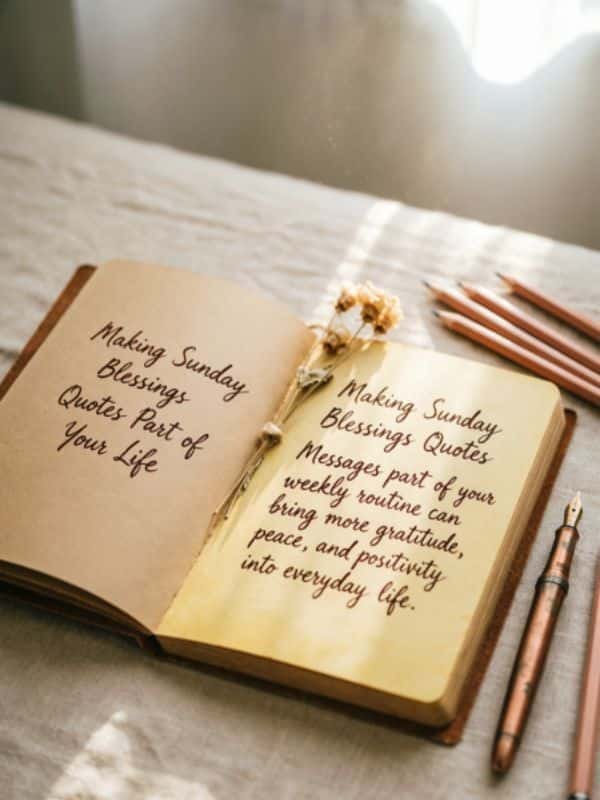 Making Sunday
Blessings
Quotes Part of
Your Life
Making Sunday
Blessings Quotes
Messages part of your
weekly routine can
bring more gratitude,
peace, and positivity
into everyday life.